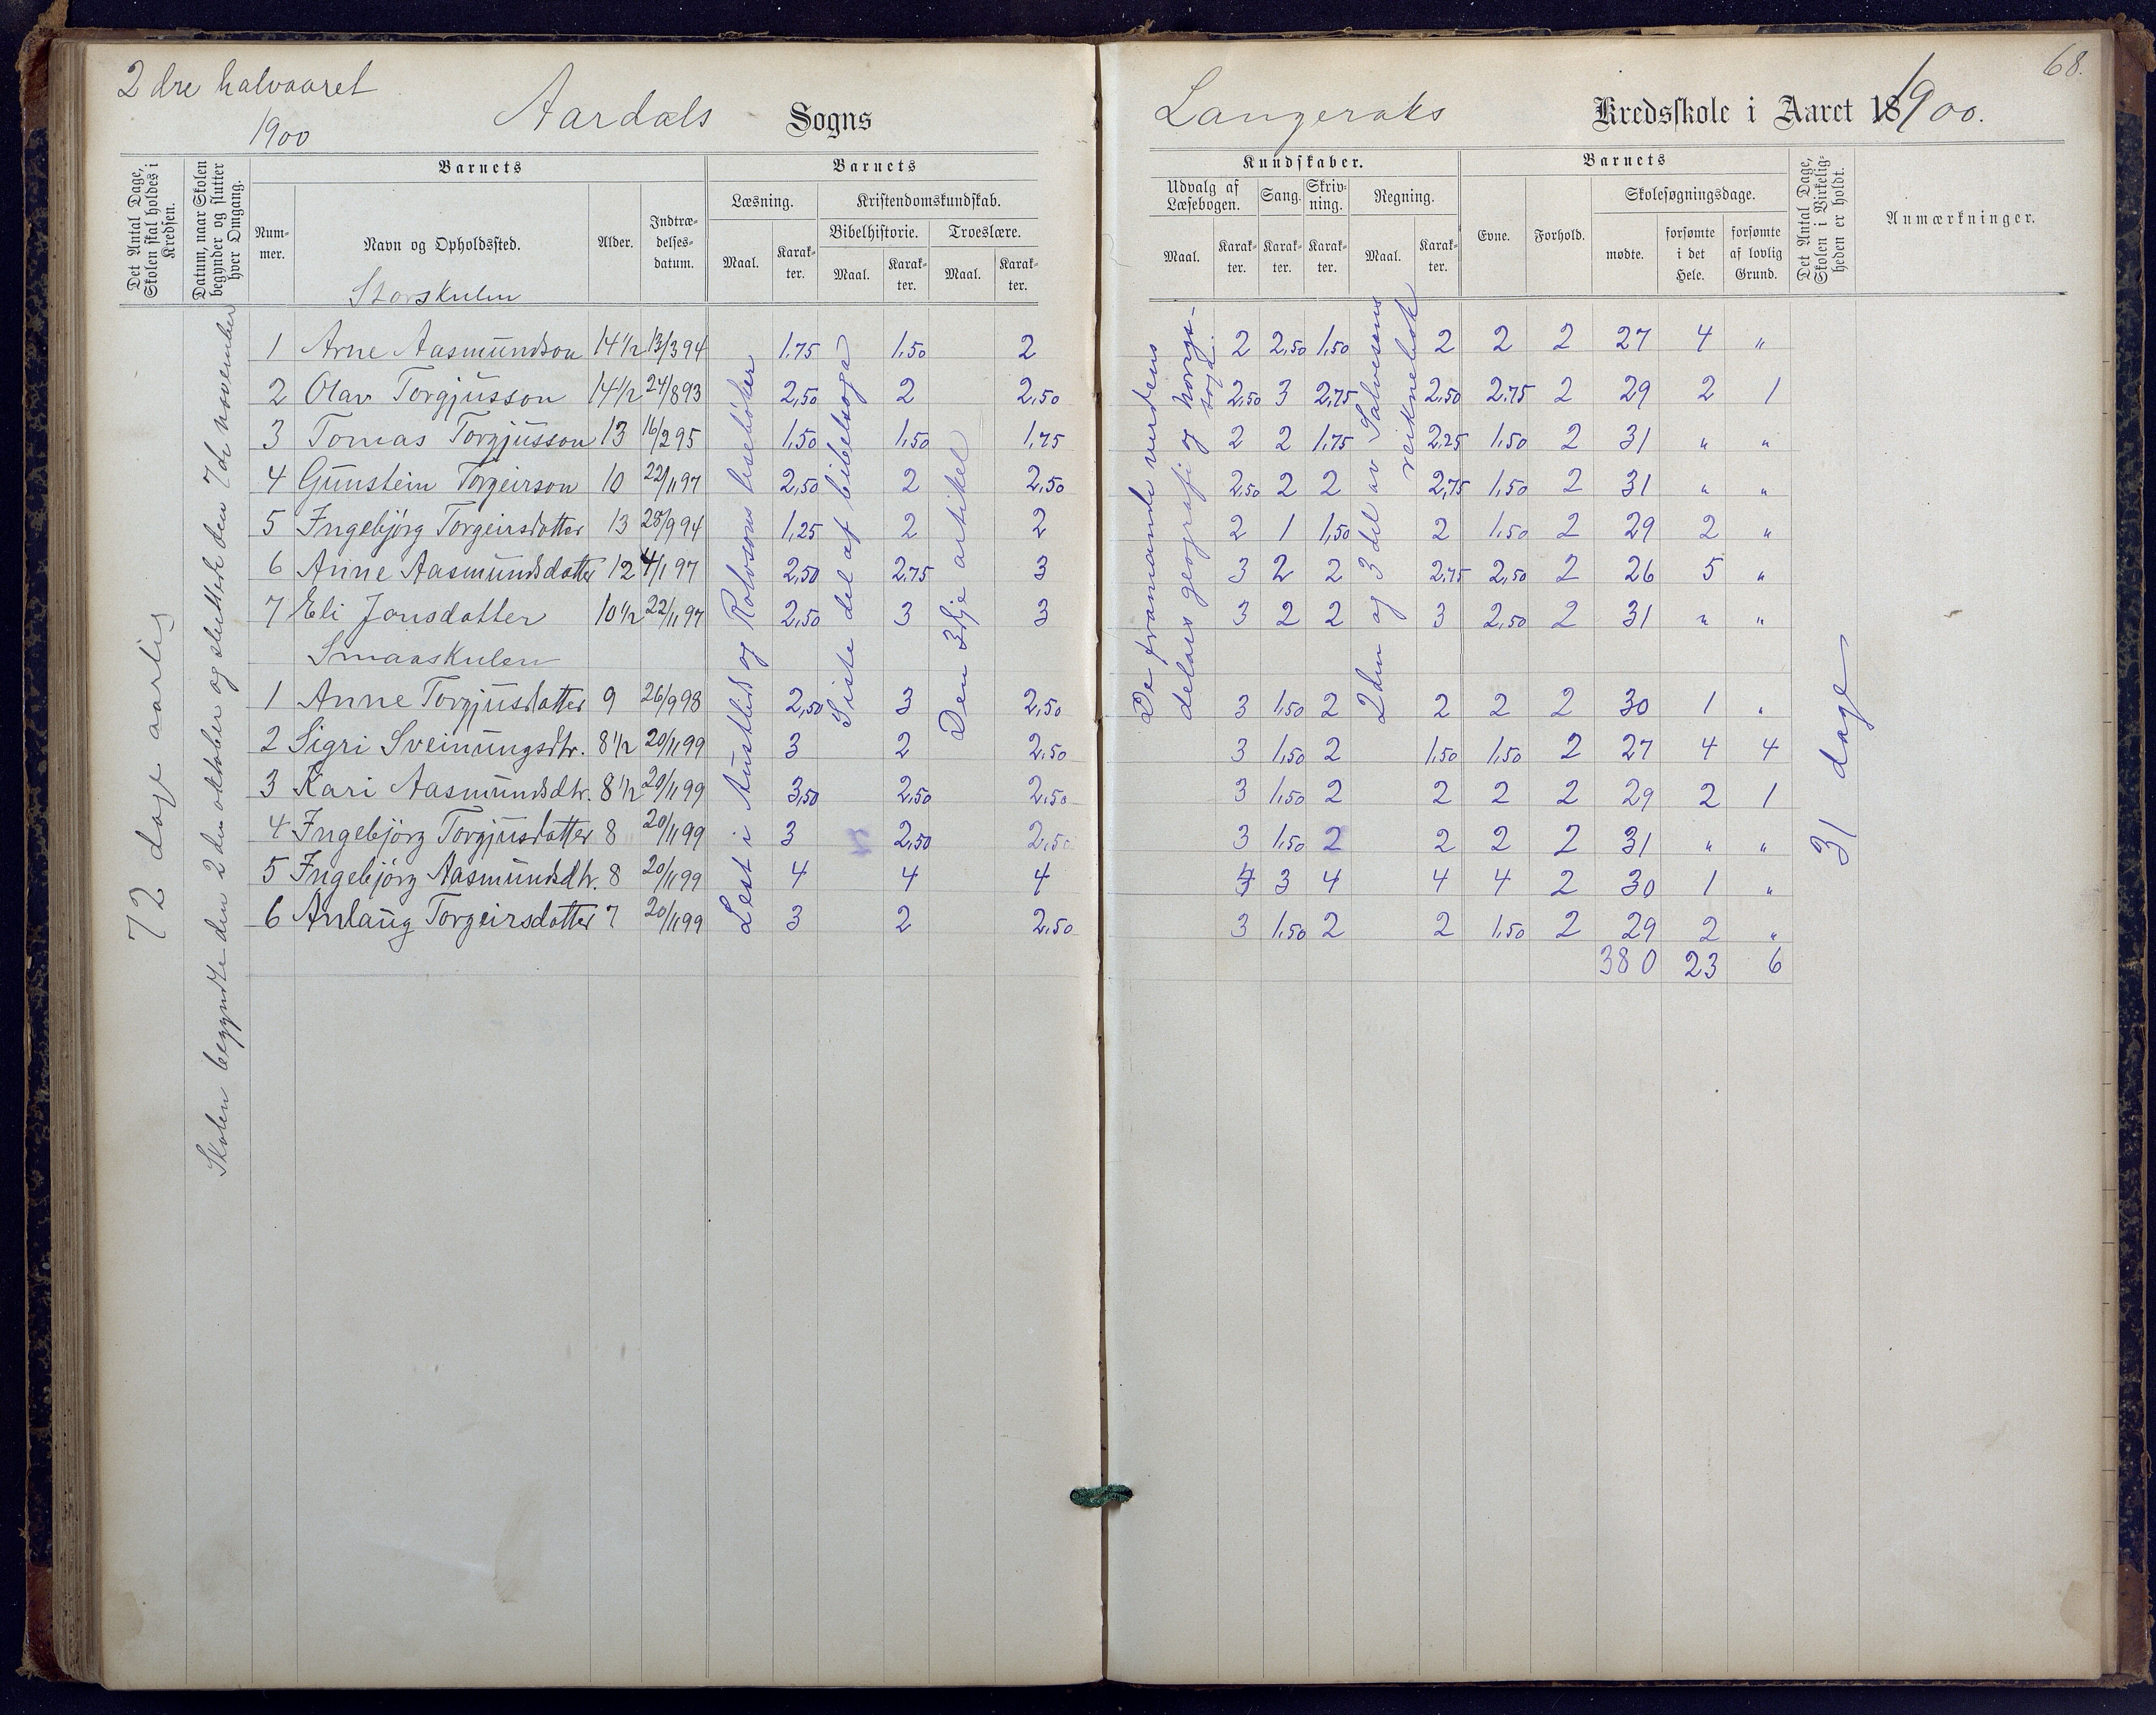 2dre halvaaret
1900
Aardals Sogns
Langeraks Kredsskole i Aaret 1900.
68.
Det Antal Dage, Skolen skal holdes i Kredsen.
Datum, naar Skolen begynder og slutter hver Omgang.
Barnets
Nummer.
Navn og Opholdssted.
Alder.
Indtrædelsesdatum.
Barnets
Læsning.
Kristendomskundskab.
Bibelhistorie.
Troeslære.
Maal. Karakter. Maal. Karakter. Maal. Karakter.
Kundskaber.
Udvalg af Læsebogen. Sang. Skrivning. Regning.
Maal. Karakter. Karakter. Karakter. Maal. Karakter.
Barnets
Evne. Forhold. Skolesøgningsdage.
mødte. forsømte i det Hele. forsømte af lovlig Grund.
Det Antal Dage, Skolen i Virkeligheden er holdt.
Anmærkninger.
72 dage aarlig
Skolen begyndte den 2den oktober og sluttede den 7de november
Lest i Austlid og Rolvsons lesebøker
Siste del af bibelsoga
Den 3dje artikel
De framande verdens
delars geografi og norgs-
soga.
2den og 3 del av Salvesens
reiknebok
31 dage
Storskulen
1 Arne Aasmundson 14½ 13/3 94 1,75 1,50 2 2 2,50 1,50 2 2 2 27 4 "
2 Olav Torgjusson 14½ 24/8 93 2,50 2 2,50 2,50 3 2,75 2,50 2,75 2 29 2 1
3 Tomas Torgjusson 13 16/2 95 1,50 1,50 1,75 2 2 1,75 2,25 1,50 2 31 " "
4 Gunstein Torgeirson 10 22/11 97 2,50 2 2,50 2,50 2 2 2,75 1,50 2 31 " "
5 Ingebjörg Torgeirsdotter 13 25/9 94 1,25 2 2 2 1 1,50 2 1,50 2 29 2 "
6 Anne Aasmundsdotter 12 4/1 97 2,50 2,75 3 3 2 2 2,75 2,50 2 26 5 "
7 Eli Jonsdotter 10½ 22/11 97 2,50 3 3 3 2 2 3 2,50 2 31 " "
Smaaskulen
1 Anne Torgjusdotter 9 26/9 98 2,50 3 2,50 3 1,50 2 2 2 2 30 1 "
2 Sigri Sveinungsdtr. 8½ 20/11 99 3 2 2,50 3 1,50 2 1,50 1,50 2 27 4 4
3 Kari Aasmundsdtr. 8½ 20/11 99 3,50 2,50 2,50 3 1,50 2 2 2 2 29 2 1
4 Ingebjörg Torgjusdotter 8 20/11 99 3 2,50 2,50 3 1,50 2 2 2 2 31 " "
5 Ingebjörg Aasmundsdtr. 8 20/11 99 4 4 4 4 3 4 4 4 2 30 1 "
6 Anlaug Torgeirsdotter 7 20/11 99 3 2 2,50 3 1,50 2 2 1,50 2 29 2 "
380 23 6